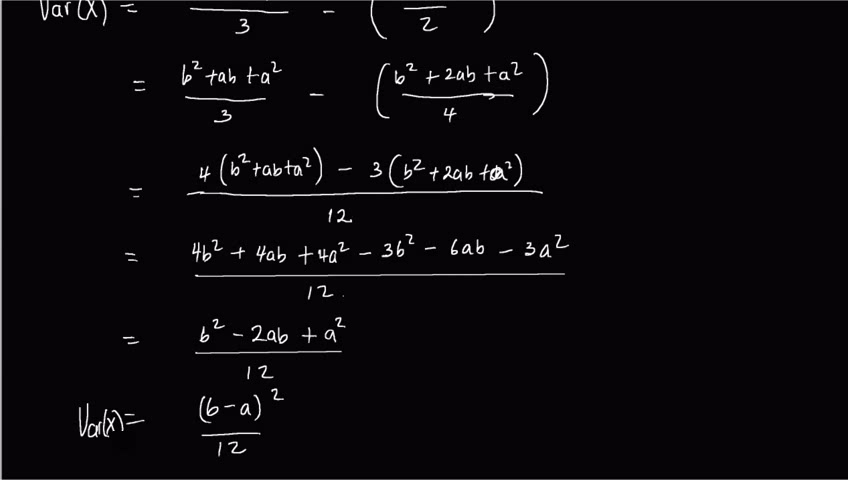 Var(X) = /3 - ( /2 )
= (b² + ab + a²)/3 - ((b² + 2ab + a²)/4)
= (4(b² + ab + a²) - 3(b² + 2ab + a²))/12
= (4b² + 4ab + 4a² - 3b² - 6ab - 3a²)/12
= (b² - 2ab + a²)/12
Var(X) = (b - a)²/12